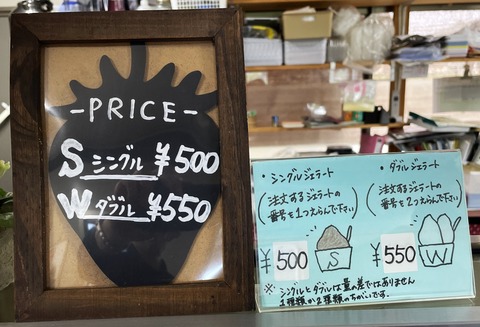 -PRICE-
S シングル ¥500
W ダブル ¥550
・シングルジェラート
(注文するジェラートの
番号を1つえらんで下さい)
¥500
S
・ダブルジェラート
(注文するジェラートの
番号を2つえらんで下さい)
¥550
W
※シングルとダブルは量の差ではありません
1種類か2種類のちがいです。